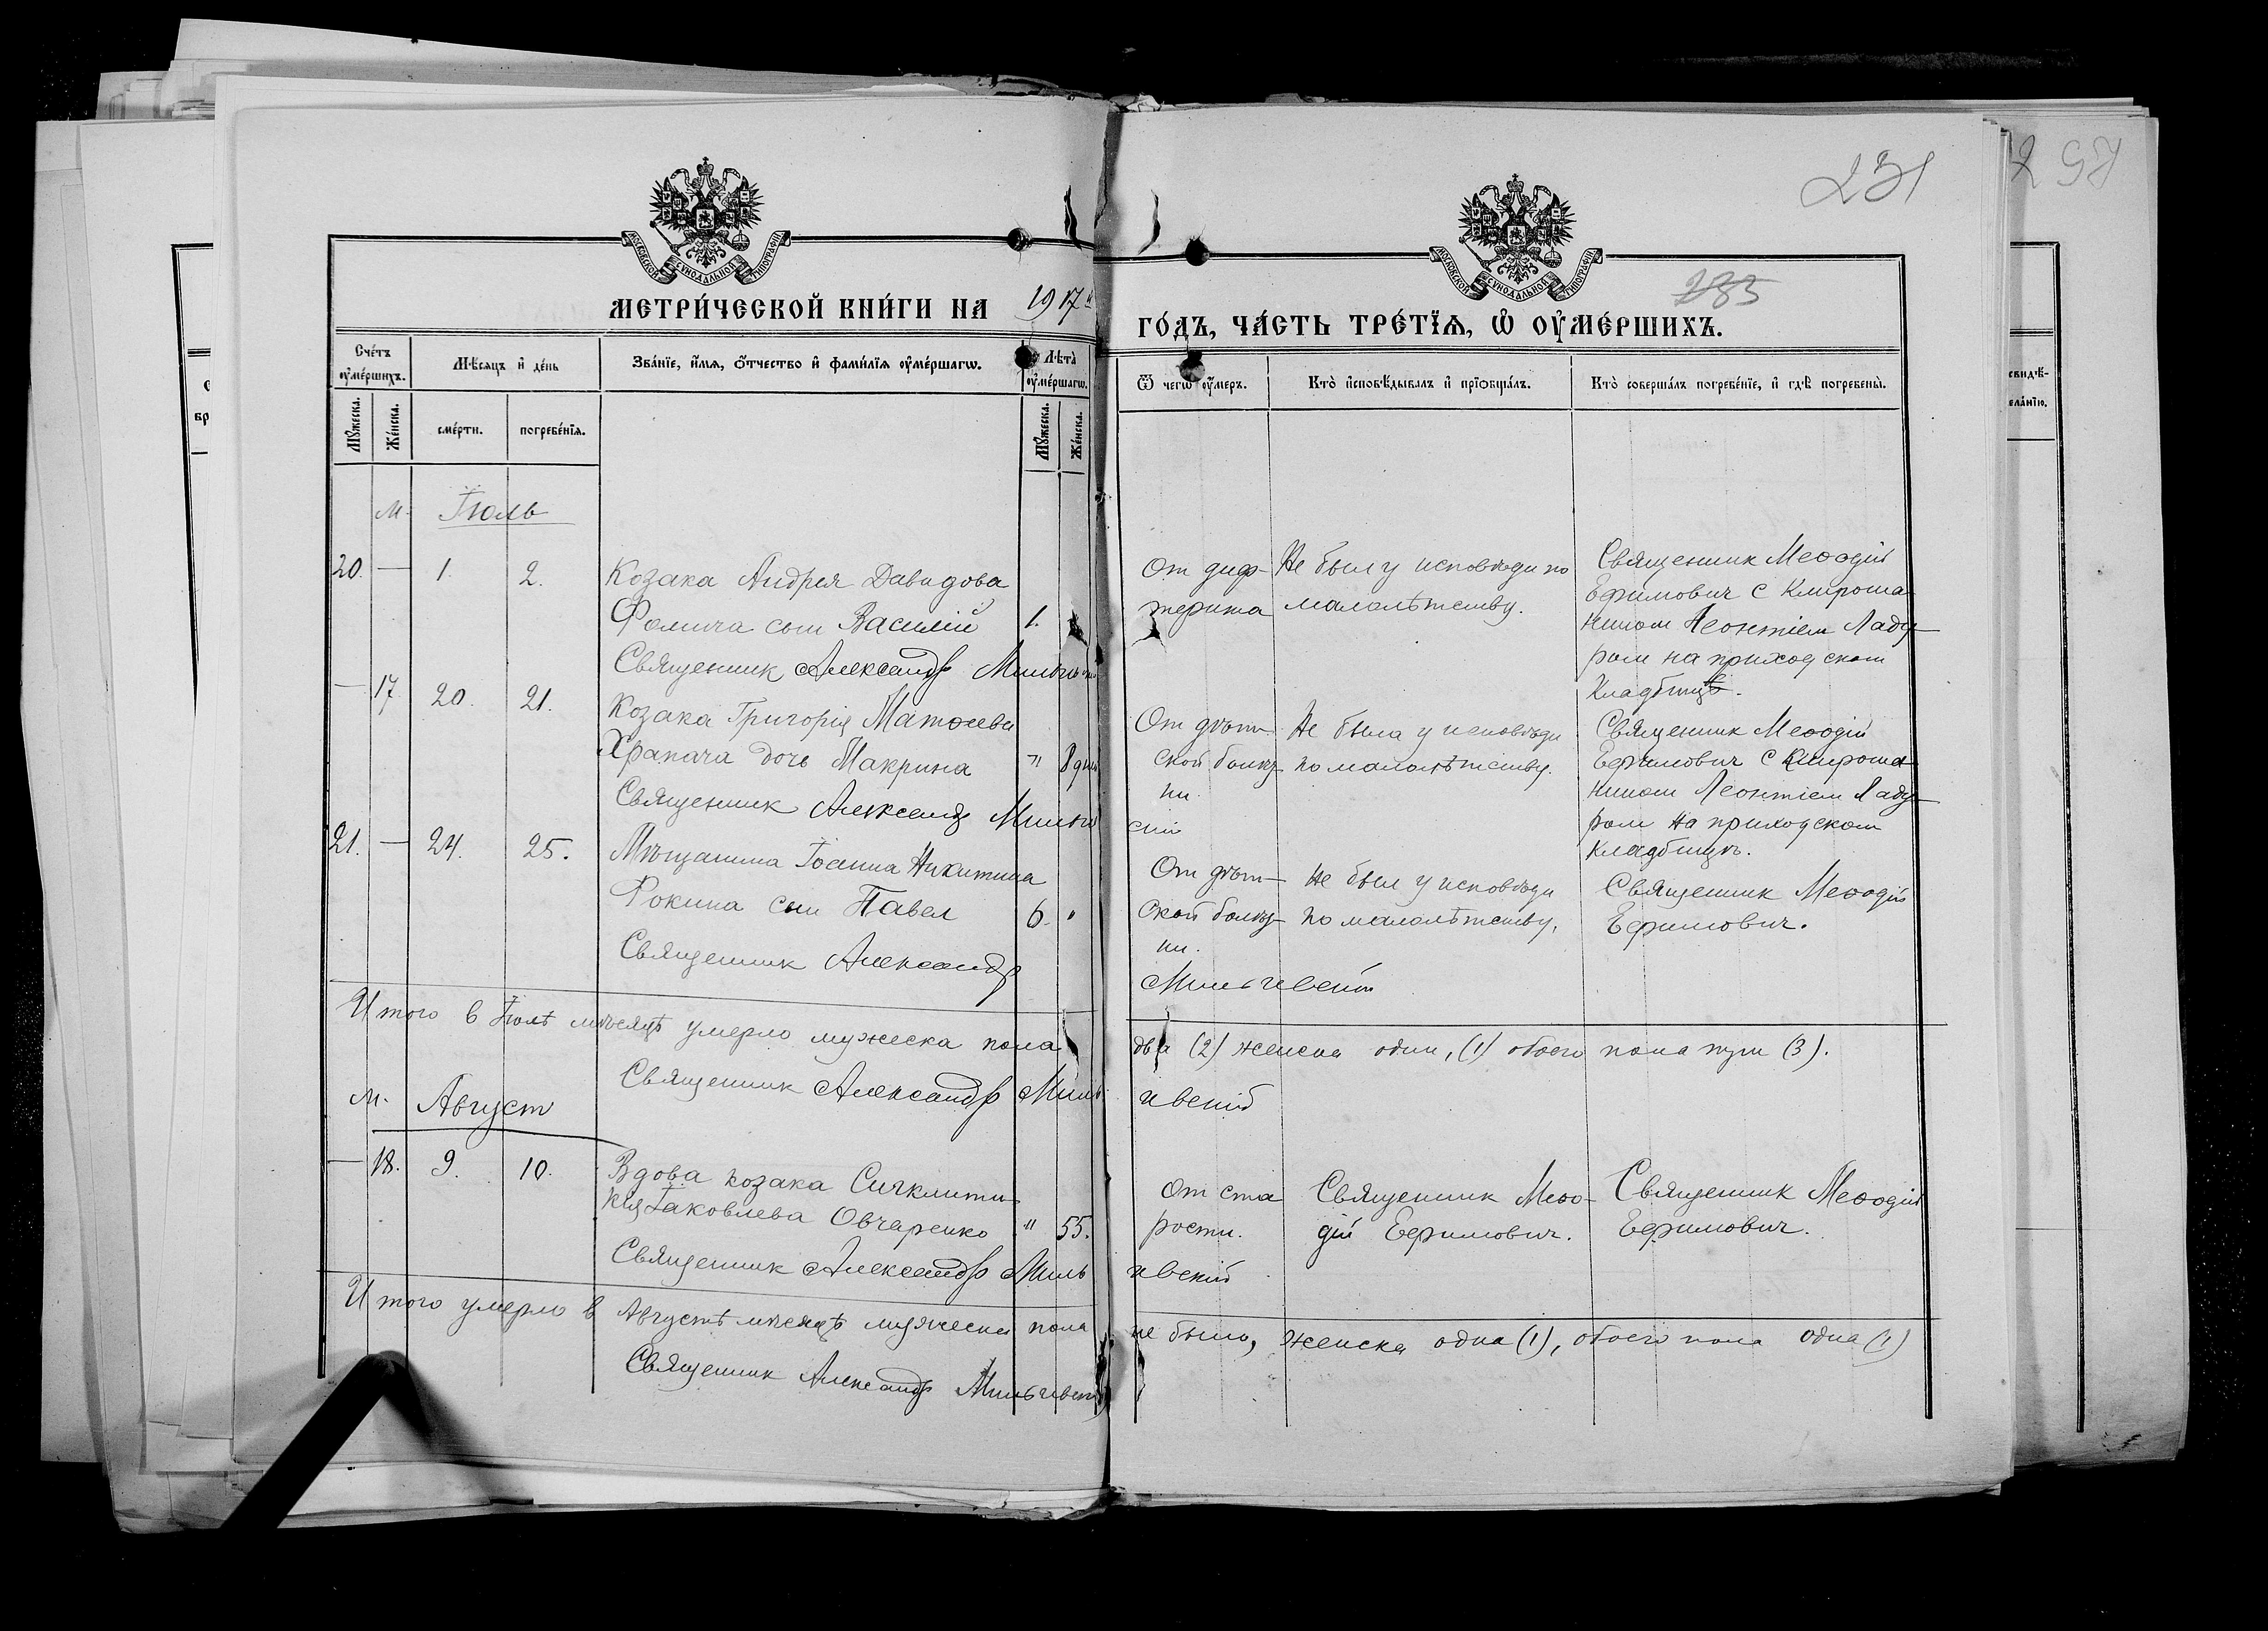 231
МОСКОВСКОЙ СѴНОДАЛЬНОЙ ТИПОГРАФІИ
МОСКОВСКОЙ СѴНОДАЛЬНОЙ ТИПОГРАФІИ
235
МЕТРИ́ЧЕСКОЙ КНИ́ГИ НА 1917 й
ГО́ДЪ, ЧА́СТЬ ТРЕ́ТЇѦ, Ѽ ОУ҆МЕ́РШИХЪ.
Сче́тъ оу҆ме́ршихъ.
Мѣ́сяцъ и҆ де́нь
Зва́нїе, и҆́мя, ѻ҆́тчество и҆ фами́лїя оу҆ме́ршагѡ.
Лѣ́та оу҆ме́ршагѡ.
Ѿ чегѡ̀ оу҆́меръ.
Кто̀ и҆сповѣ́дывалъ и҆ прїѡбща́лъ.
Кто̀ соверша́лъ погребе́нїе, и҆ гдѣ̀ погребены̀.
Мꙋ́жеска.
Же́нска.
сме́рти.
погребе́нїя.
Мꙋ́жеска.
Же́нска.
м. Іюль
20. — 1. 2. Козака Андрея Давидова
Фомича сын Василій 1.
Священник Александр
От диф-
терита
Не был у исповѣди по
малолѣтству.
Священник Меѳодій
Ефимович с Клироша
ником Леонтіем Ладу-
ром на приходском
Кладбищѣ.
— 17. 20. 21. Козака Григорія Матѳеева
Храпача дочь Макрина " 8 дней
Священник Александр Мильчев
скій
От дѣт-
ской болѣз-
ни.
Не была у исповѣди
по малолѣтству.
Священник Меѳодій
Ефимович с Клироша
ником Леонтіем Ладу-
ром на приходском
кладбищѣ.
21. — 24. 25. Мѣщанина Іоанна Никитина
Фокина сын Павел 6. "
Священник Александр
Мильчевскій
От дѣт-
ской болѣз-
ни.
Не был у исповѣди
по малолѣтству.
Священник Меѳодій
Ефимович.
Итого в Іюлѣ мѣсяцѣ умерло мужеска пола два (2) женска один, (1) обоего пола три (3).
Священник Александр Миль
чевскій
м. Август
— 18. 9. 10. Вдова козака Синклити-
кія Іаковлева Овчаренко " 55.
Священник Александр Миль
чевскій
От ста
рости.
Священник Меѳо-
дій Ефимович.
Священник Меѳодій
Ефимович.
Итого умерло в Августѣ мѣсяцѣ мужеска пола не было, женска одна (1), обоего пола одна (1)
Священник Александр Мильчевскій